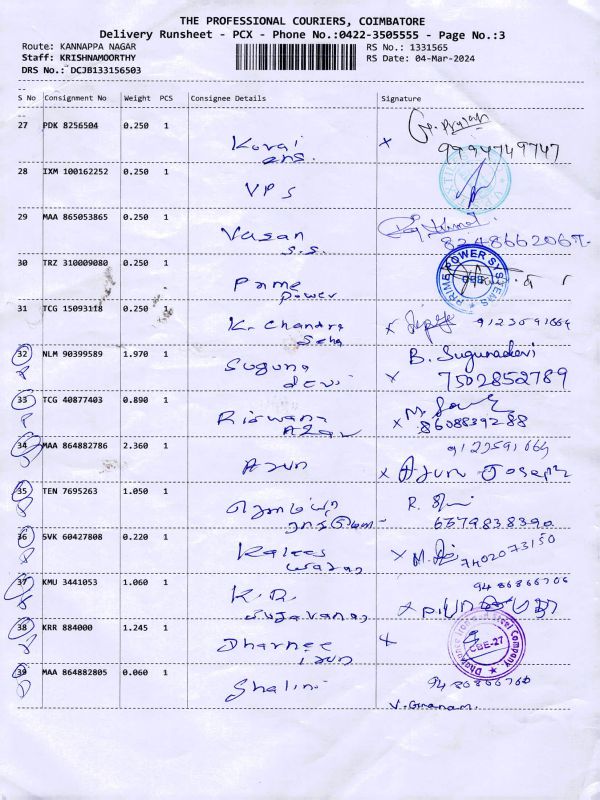 THE PROFESSIONAL COURIERS, COIMBATORE
Delivery Runsheet - PCX - Phone No.:0422-3505555 - Page No.:3
Route: KANNAPPA NAGAR
RS No.: 1331565
Staff: KRISHNAMOORTHY
RS Date: 04-Mar-2024
DRS No.: DCJB133156503
S No Consignment No Weight PCS Consignee Details Signature
27 PDK 8256504 0.250 1
Kovai
ens. x 9994749747
28 IXM 100162252 0.250 1
VPS
29 MAA 865053865 0.250 1
Vasan
S.S. 8248662067
30 TRZ 310009080 0.250 1
Prime
power
PRIME POWER SYSTEMS
CBE
31 TCG 15093118 0.250 1
K. Chandra
Seha x 9123591664
32 NLM 90399589 1.970 1 B. Sugunadevi
Suguna
devi x 7502852789
33 TCG 40877403 0.890 1
Riswana
Azar x 8608839288
34 MAA 864882786 2.360 1 9123591664
Arun x Arun Joseph
35 TEN 7695263 1.050 1
R.
6379838390
36 SVK 60427808 0.220 1
Kalees
waran x M. 7402073150
37 KMU 3441053 1.060 1 9486866706
K.R.
x
38 KRR 884000 1.245 1
Dharnee x
CBE-27
39 MAA 864882805 0.060 1
Shalini
V. Gnanam.